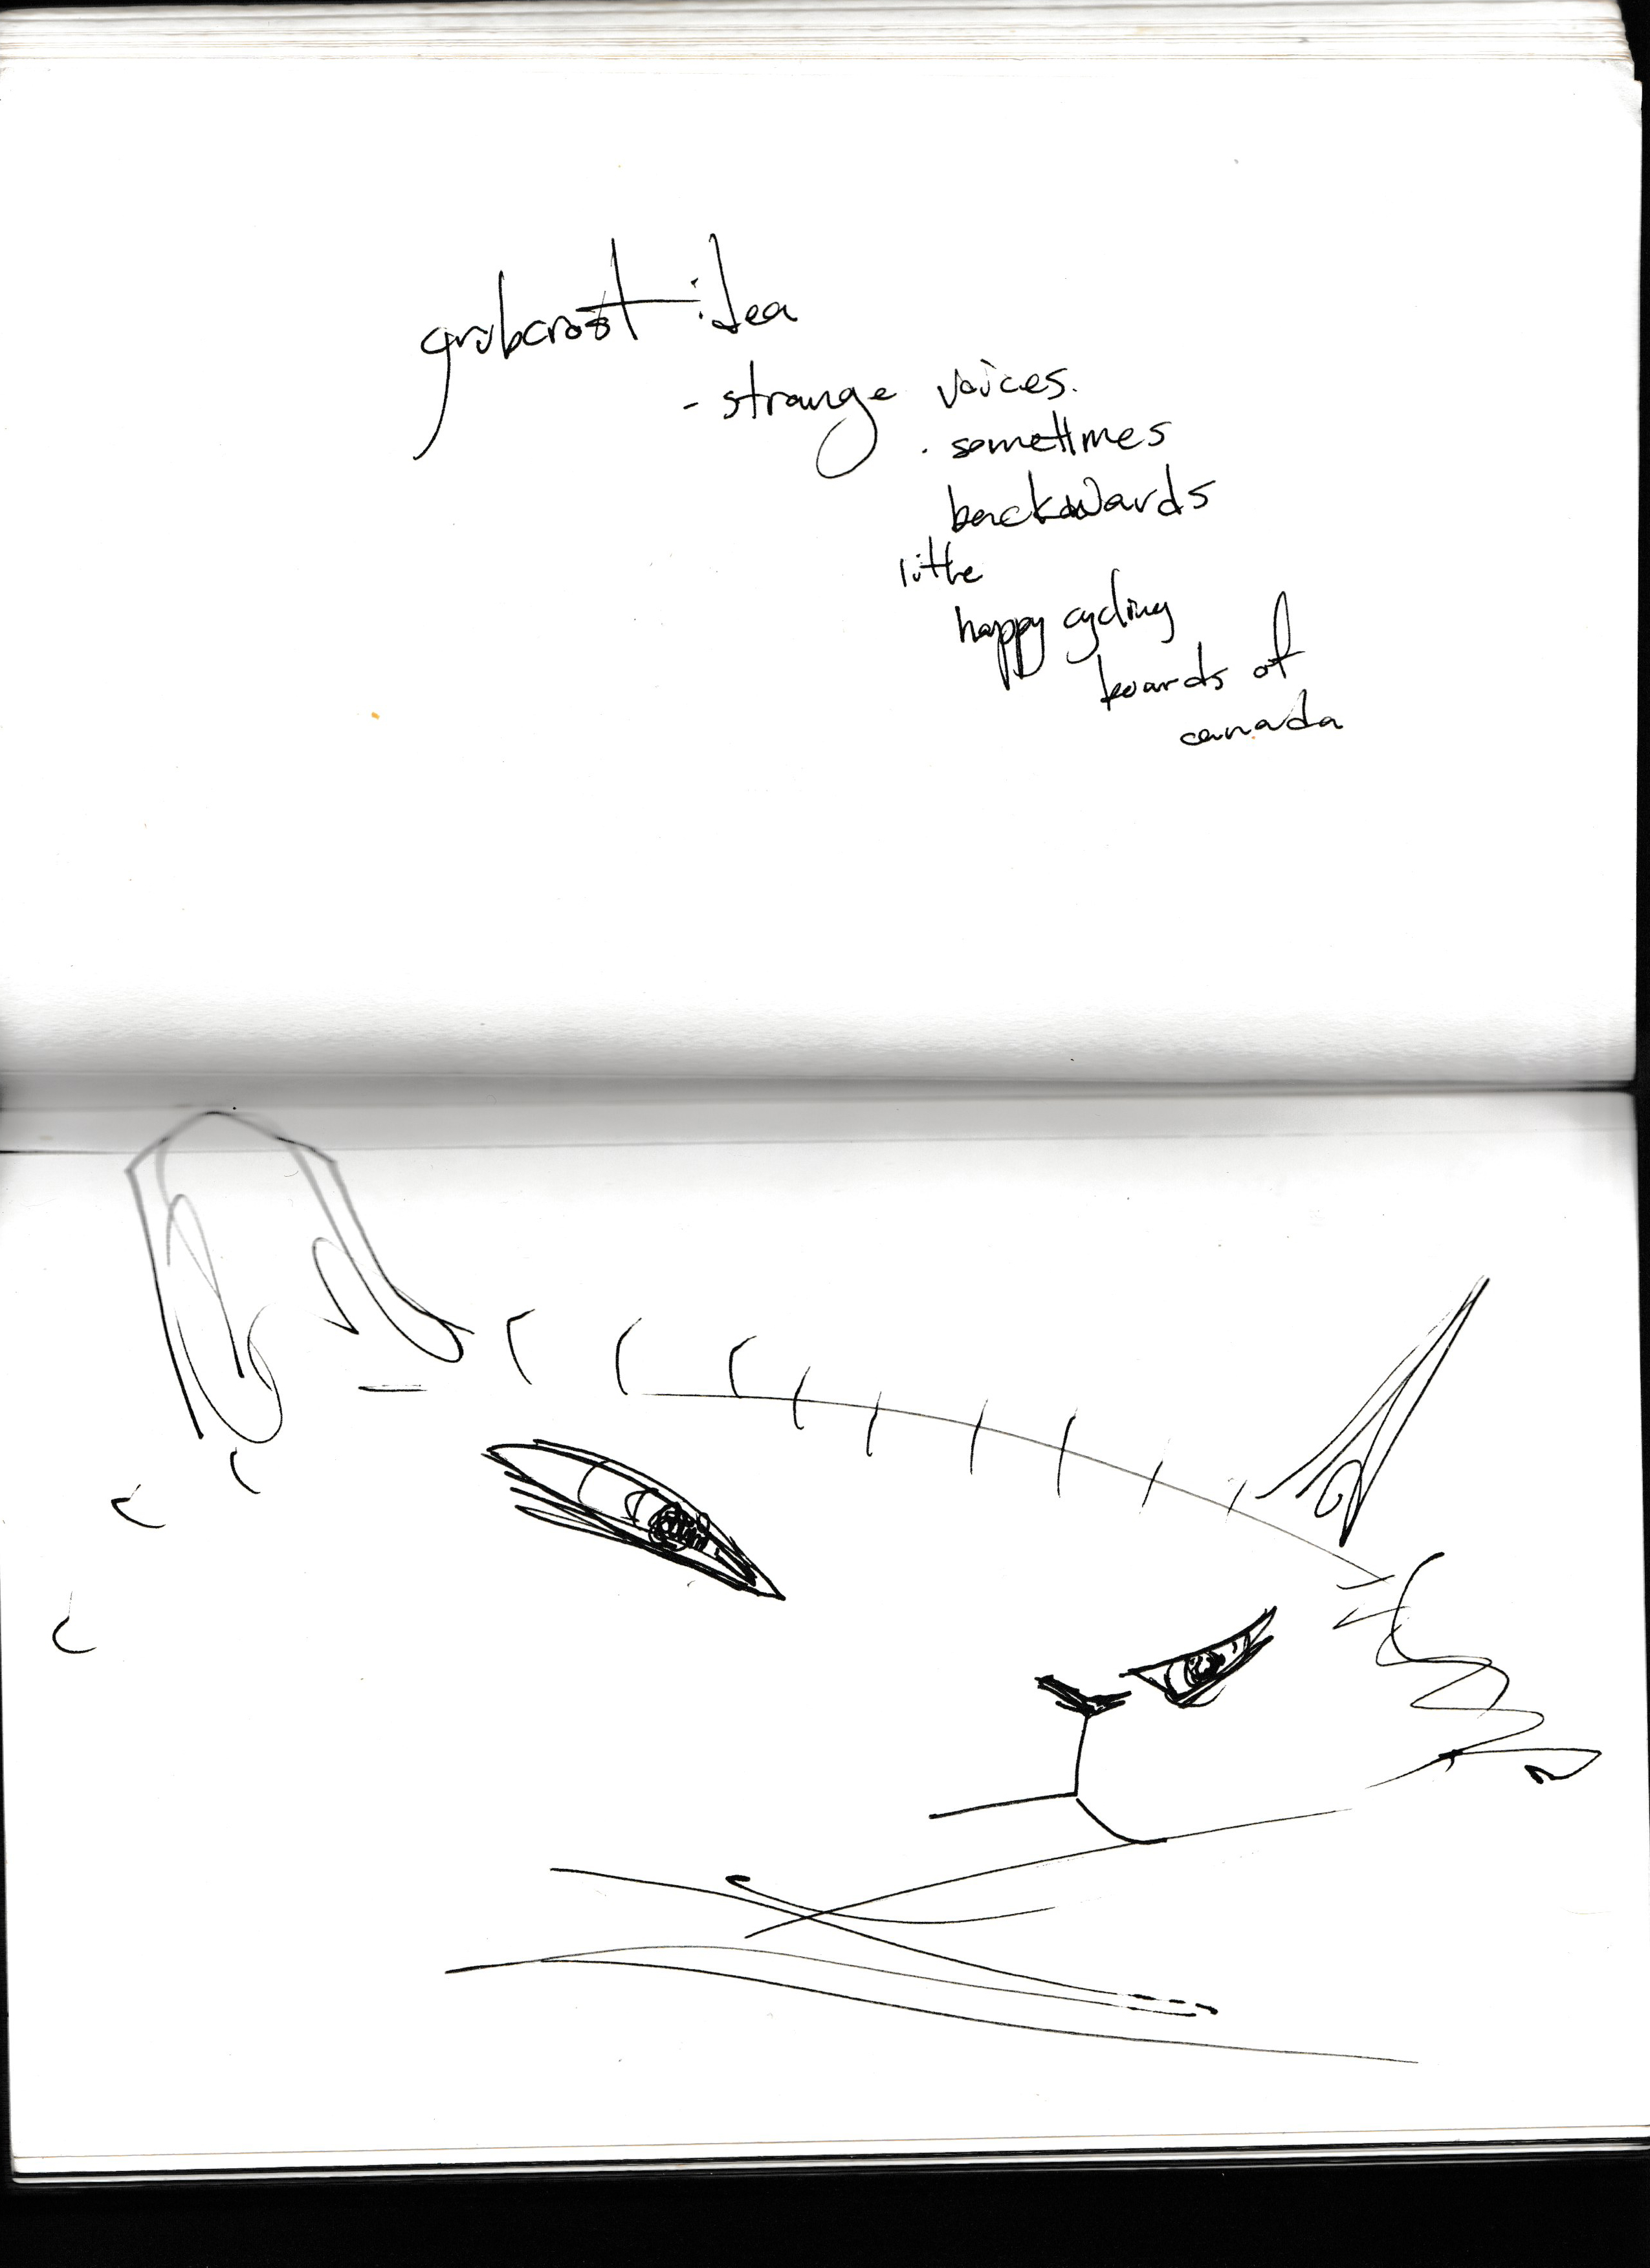 grubcrost idea
- strange voices.
. sometimes
backwards
little
happy cycling
boards of
canada